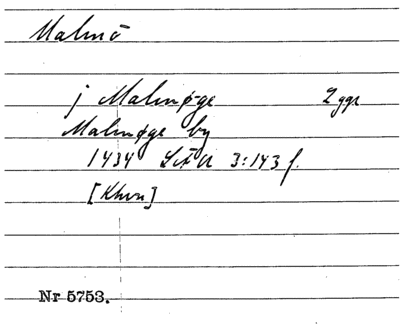 Malmö
j Malmøge 2 ggr
Malmøge by
1434 SÆA 3:143 f.
[Khvn]
Nr 5753.